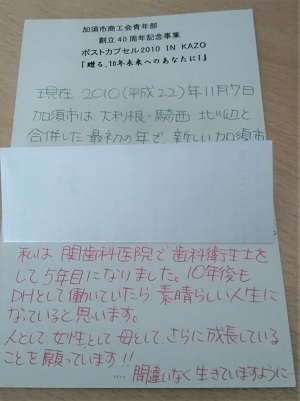 加須市商工会青年部
創立40周年記念事業
ポストカプセル2010 IN KAZO
「贈る、10年未来へのあなたに!」
現在 2010(平成22)年11月7日
加須市は 大利根・騎西・北川辺と
合併した 最初の年で、新しい加須市
私は 関歯科医院で 歯科衛生士を
して 5年目になりました。10年後も
DHとして働いていたら、素晴らしい人生に
なっていると思います。
人として、女性として 母として、さらに成長している
ことを願っています!!
.... 間違いなく 生きていますように…